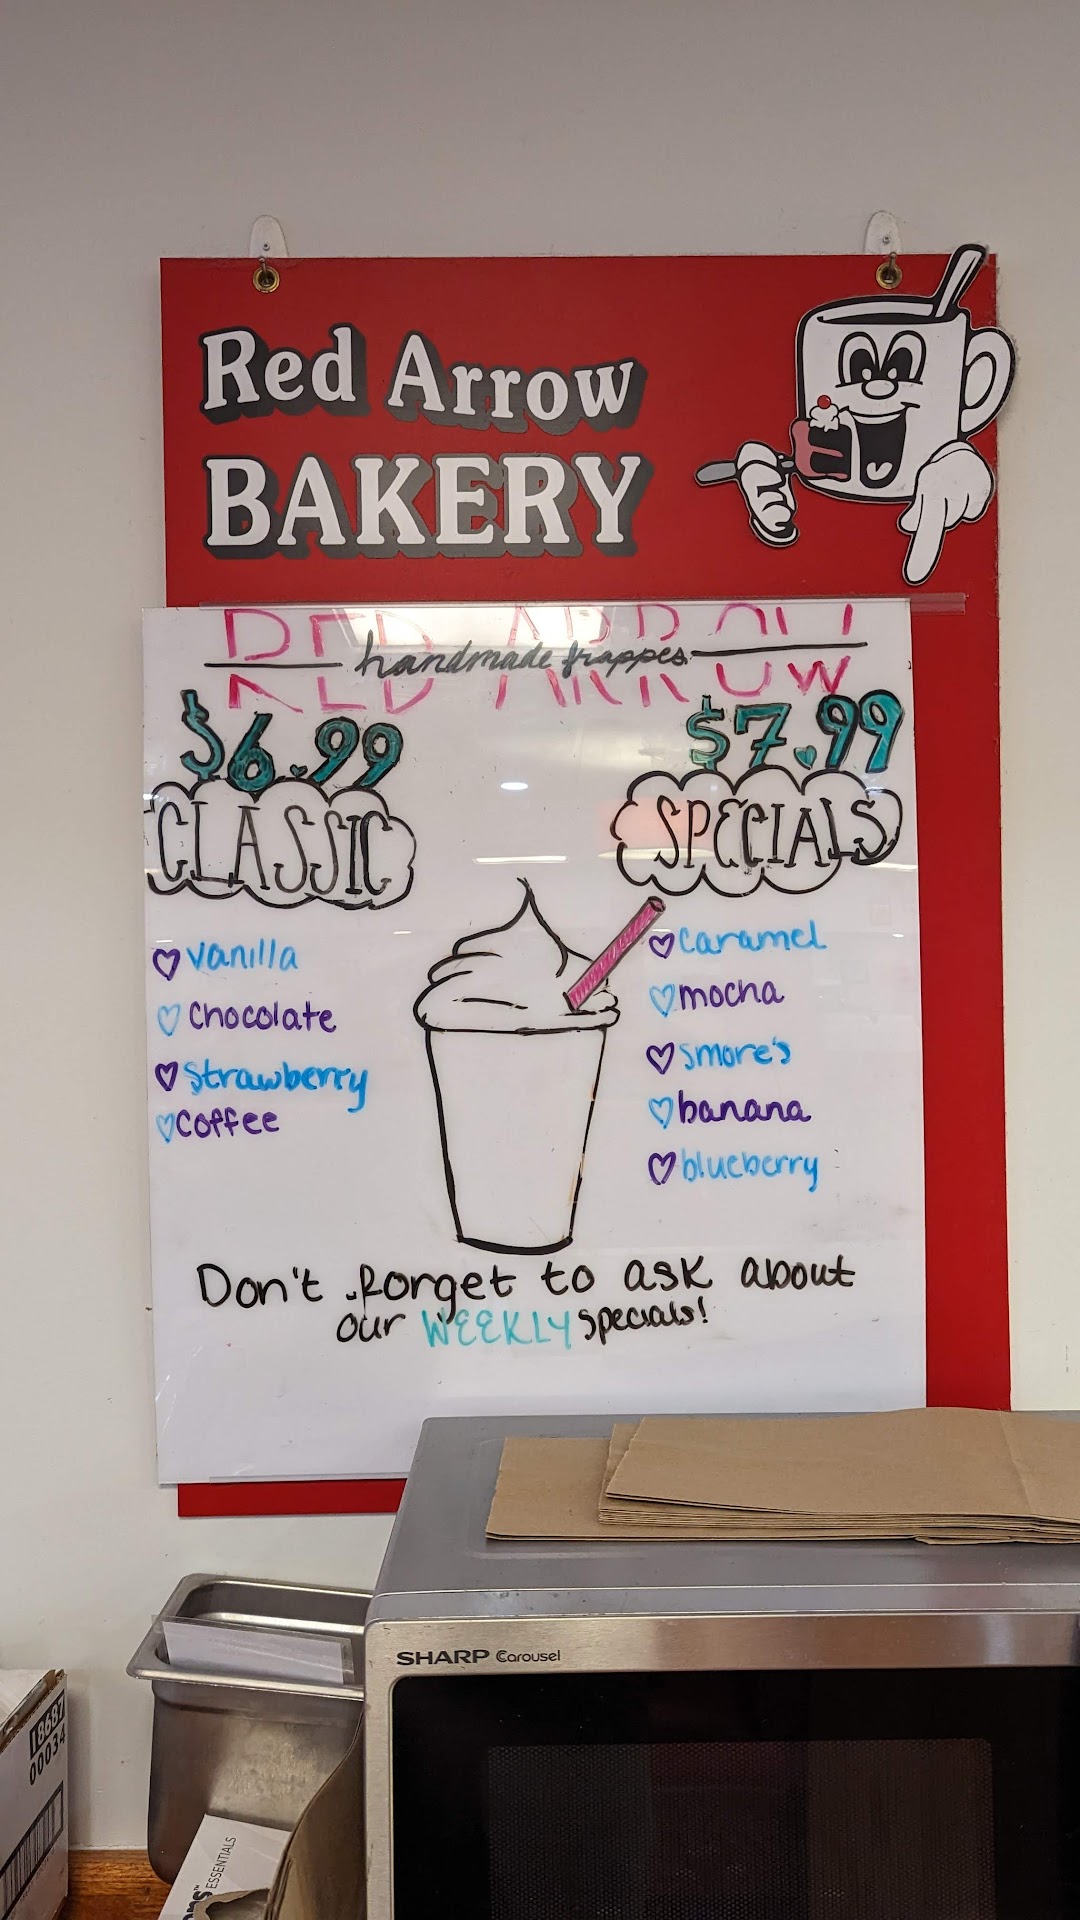 Red Arrow
BAKERY
RED ARROW
handmade frappes
$6.99
$7.99
CLASSIC
SPECIALS
vanilla
Chocolate
Strawberry
Coffee
caramel
mocha
smore's
banana
blueberry
Don't forget to ask about
our WEEKLY specials!
SHARP Carousel
18687
00034
ESSENTIALS